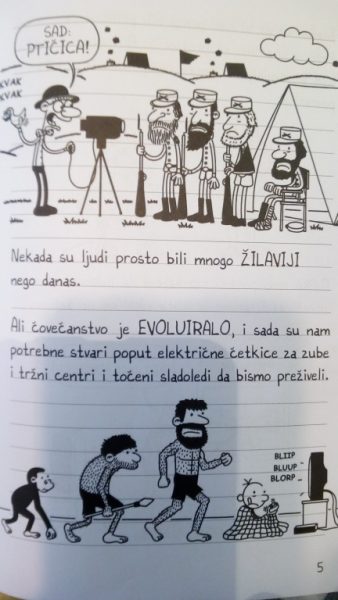 SAD:
PTIČICA!
KVAK
KVAK
Nekada su ljudi prosto bili mnogo ŽILAVIJI
nego danas.
Ali čovečanstvo je EVOLUIRALO, i sada su nam
potrebne stvari poput električne četkice za zube
i tržni centri i točeni sladoledi da bismo preživeli.
BLIIP
BLUUP
BLORP
5